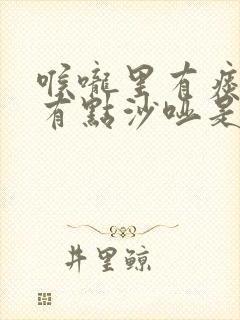 喉嚨里有痰
有點沙啞是
井里鲸